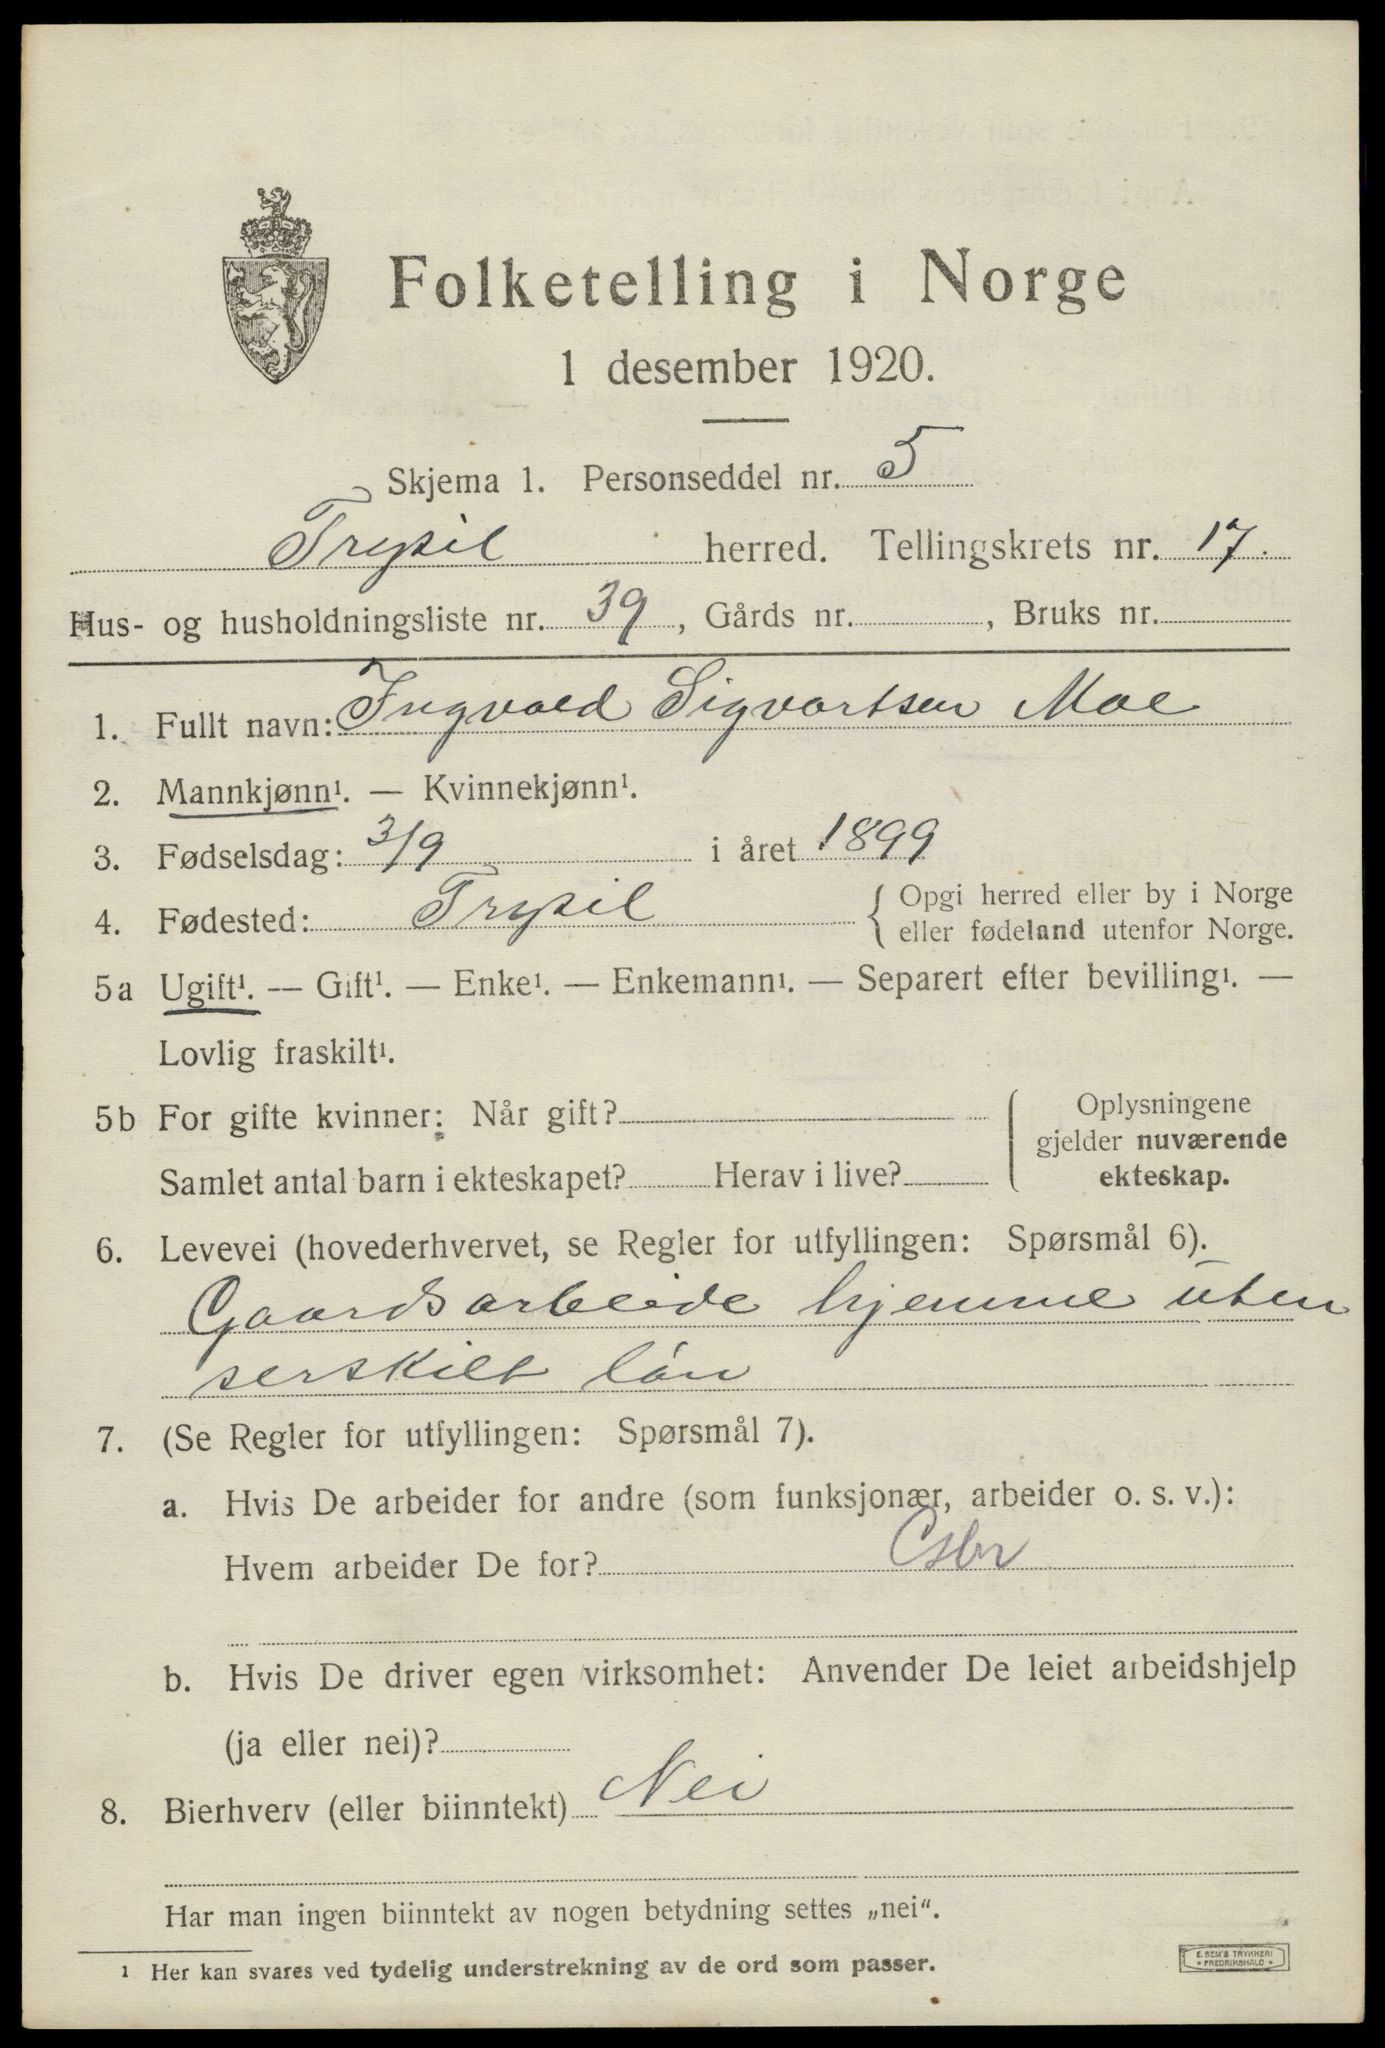 Folketelling i Norge
1 desember 1920.
Skjema 1. Personseddel nr. 5
Trysil herred. Tellingskrets nr. 17.
Hus- og husholdningsliste nr. 39, Gårds nr. , Bruks nr.
1. Fullt navn: Ingvald Sigvartsen Moe
2. Mannkjønn¹. — Kvinnekjønn¹.
3. Fødselsdag: 3/9 i året 1899
4. Fødested: Trysil { Opgi herred eller by i Norge
eller fødeland utenfor Norge.
5a Ugift¹. — Gift¹. — Enke¹. — Enkemann¹. — Separert efter bevilling¹. —
Lovlig fraskilt¹.
5b For gifte kvinner: Når gift?
Samlet antal barn i ekteskapet? Herav i live?
Oplysningene
gjelder nuværende
ekteskap.
6. Levevei (hovederhvervet, se Regler for utfyllingen: Spørsmål 6).
Gaardsarbeide hjemme uten
serskilt lön
7. (Se Regler for utfyllingen: Spørsmål 7).
a. Hvis De arbeider for andre (som funksjonær, arbeider o. s. v.):
Hvem arbeider De for?
b. Hvis De driver egen virksomhet: Anvender De leiet arbeidshjelp
(ja eller nei)?
8. Bierhverv (eller biinntekt) Nei
Har man ingen biinntekt av nogen betydning settes „nei“.
¹ Her kan svares ved tydelig understrekning av de ord som passer.
E. SEM'S TRYKKERI
FREDRIKSHALD